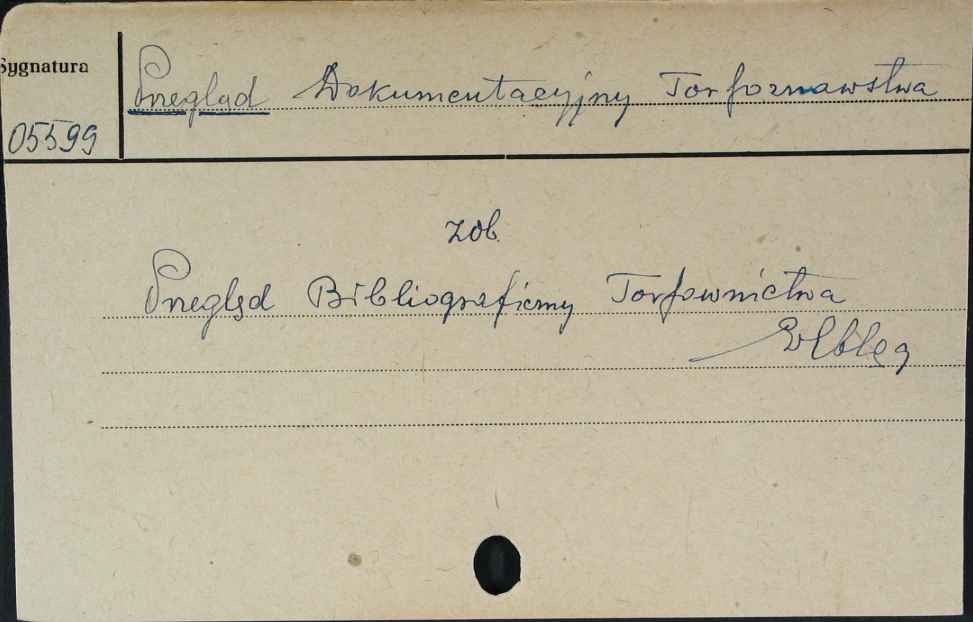 Sygnatura
Przegląd Dokumentacyjny Torfoznawstwa
05599
zob.
Przegląd Bibliograficzny Torfownictwa